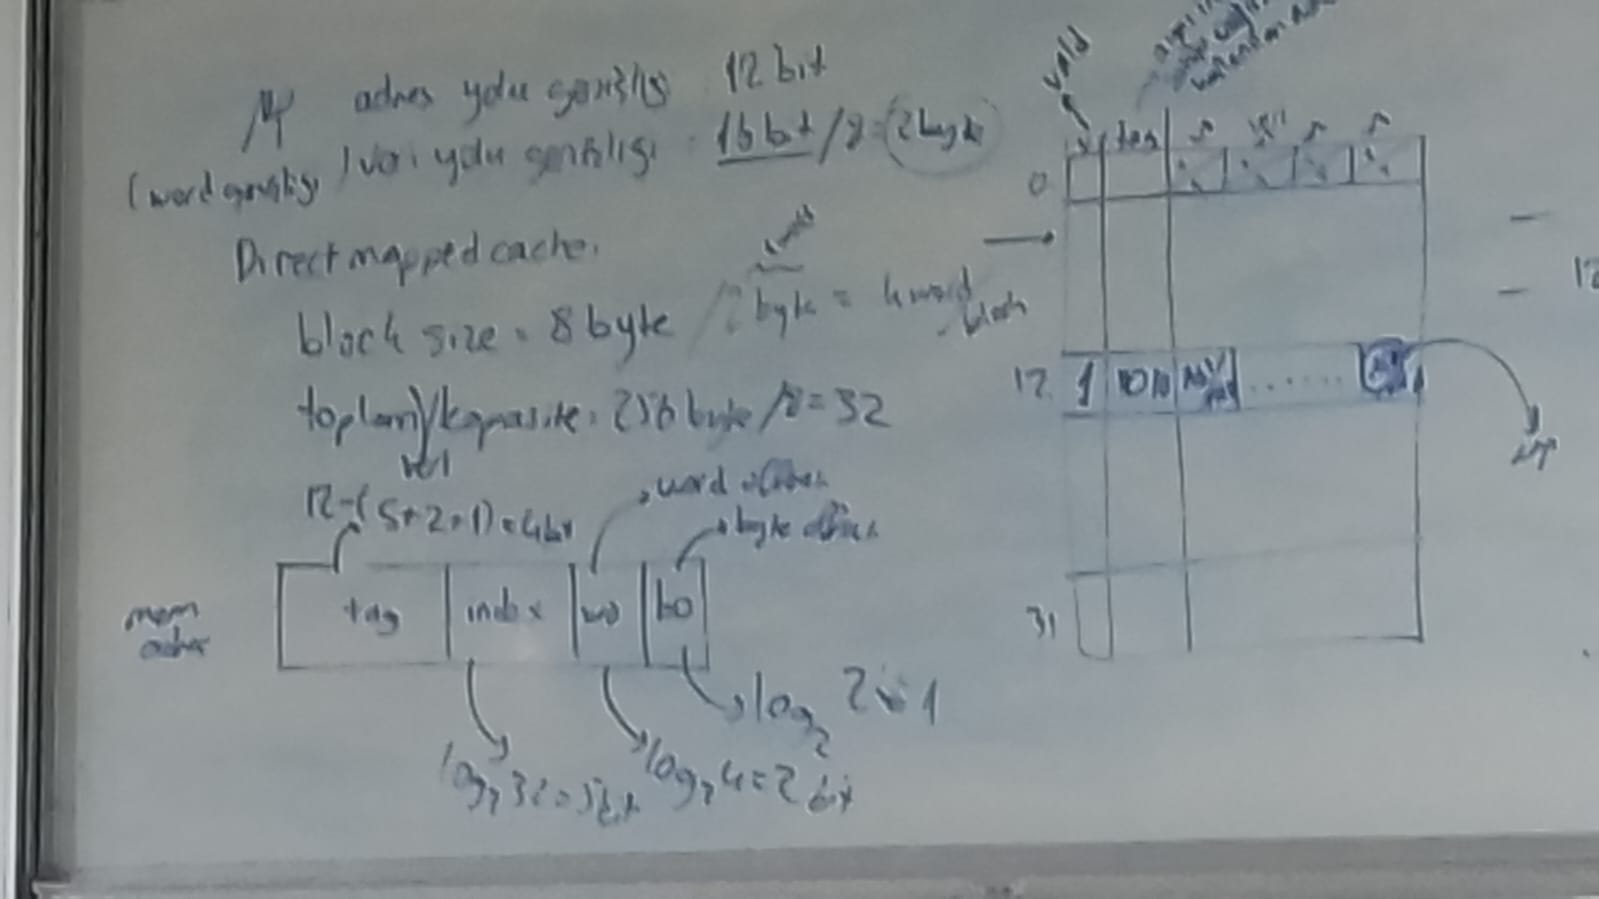 MP adres yolu genişliği 12 bit
(word genişliği) veri yolu genişliği: 16 bit / 8 = 2 byte
Direct mapped cache.
block size = 8 byte / 2 byte = 4 word
block
toplam kapasite: 256 byte / 8 = 32
veri
12-(5+2+1)=4bit
word offset
byte offset
mem
adres
tag index wo bo
log₂ 32 = 5 bit
log₂ 4 = 2 bit
log₂ 2 = 1
valid
v tag
0
12 1 1010
31